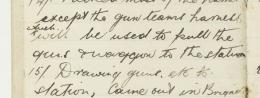 except the gun teams harness
which will be used to pull the
guns & waggon to the station
15/. Drawing guns, etc to
station, Came out in Brigade